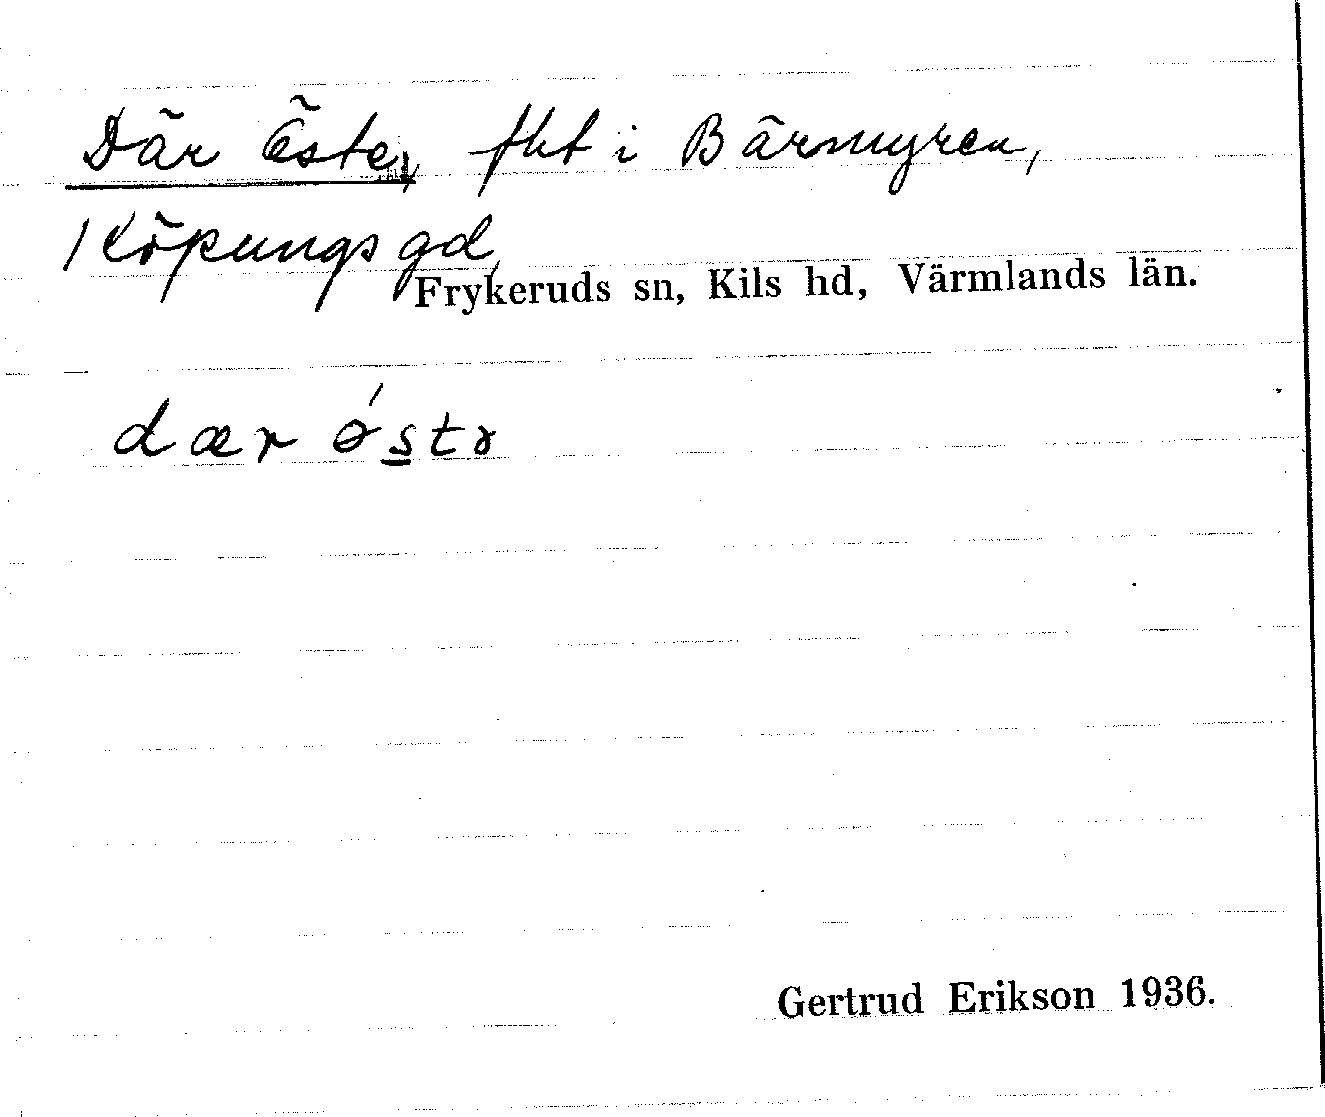 Där Öster, fkt i Bärmyren,
Köpungsgd,
Frykeruds sn, Kils hd, Värmlands län.
dær ǿstr
Gertrud Erikson 1936.